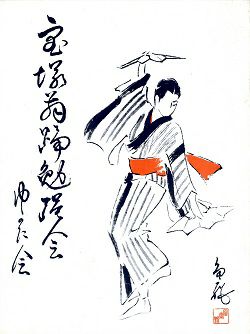 宝塚舞踊勉強会
ゆかた会